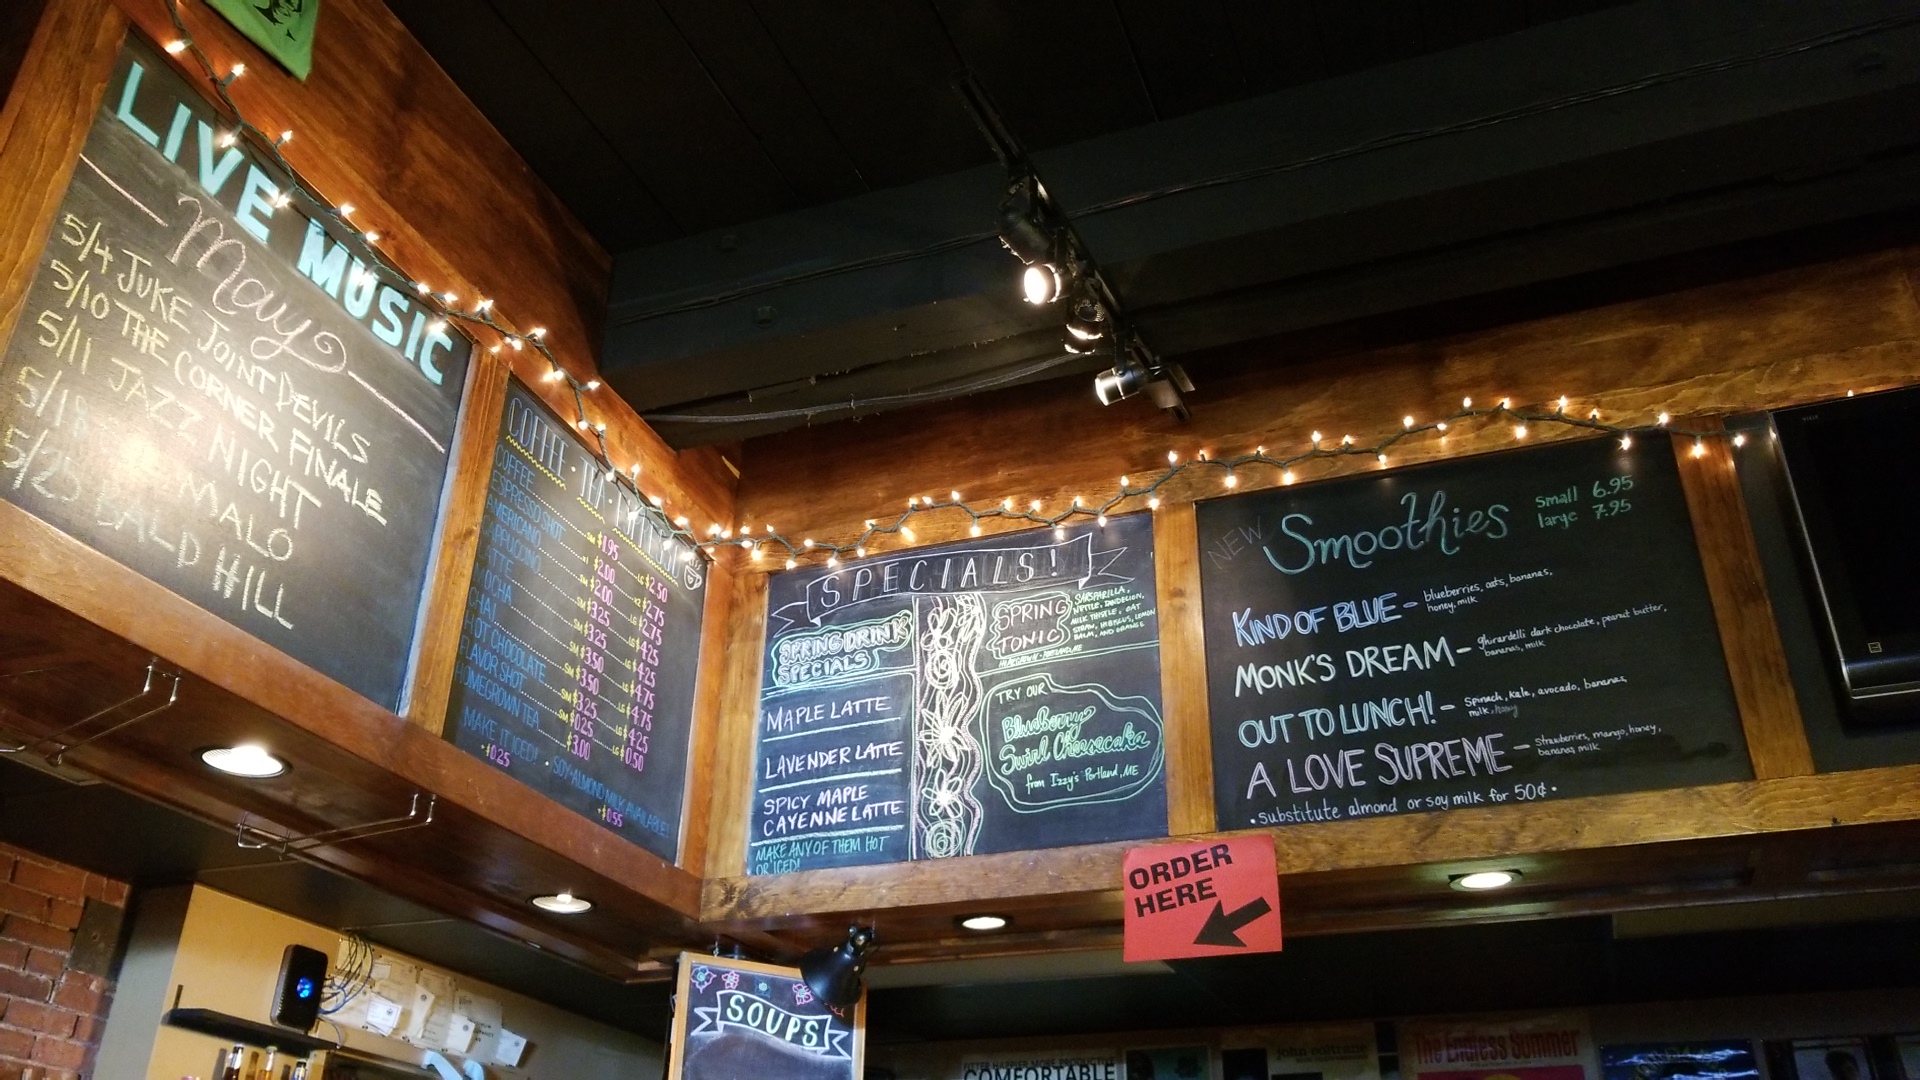 LIVE MUSIC
May
5/4 JUKE JOINT DEVILS
5/10 THE CORNER FINALE
5/11 JAZZ NIGHT
5/18 MALO
5/25 BALD HILL
COFFEE · TEA ·
COFFEE SM $1.95 LG $2.50
ESPRESSO SHOT x1 $2.00 x2 $2.75
AMERICANO SM $2.00 LG $2.75
CAPPUCCINO SM $3.25 LG $4.25
LATTE SM $3.25 LG $4.25
MOCHA SM $3.50 LG $4.75
CHAI SM $3.50 LG $4.75
HOT CHOCOLATE SM $3.25 LG $4.25
FLAVOR SHOT SM $0.25 LG $0.50
HOMEGROWN TEA $3.00
MAKE IT ICED! · SOY·ALMOND MILK AVAILABLE!
+$0.25 +$0.55
SPECIALS!
SPRING DRINK
SPECIALS
MAPLE LATTE
LAVENDER LATTE
SPICY MAPLE
CAYENNE LATTE
MAKE ANY OF THEM HOT
OR ICED!
SPRING
TONIC
SARSPARILLA,
NETTLE, DANDELION,
MILK THISTLE, OAT
STRAW, HIBISCUS, LEMON
BALM, AND ORANGE
TRY OUR
Blueberry
Swirl Cheesecake
from Izzy's Portland, ME
NEW Smoothies
small 6.95
large 7.95
KIND OF BLUE - blueberries, oats, bananas,
honey, milk
MONK'S DREAM - ghirardelli dark chocolate, peanut butter,
bananas, milk
OUT TO LUNCH! - Spinach, kale, avocado, bananas,
milk, honey
A LOVE SUPREME - Strawberries, mango, honey,
bananas, milk
• substitute almond or soy milk for 50¢ •
ORDER
HERE
SOUPS
COMFORTABLE
john coltrane
The Endless Summer